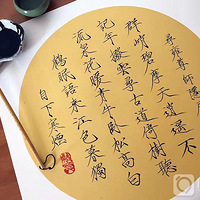 尋雍尊師隱居
群峭碧摩天逍遥不
記年撥雲尋古道倚樹聽
流泉花暖青牛卧松高白
鶴眠語來江色暮獨
自下寒煙